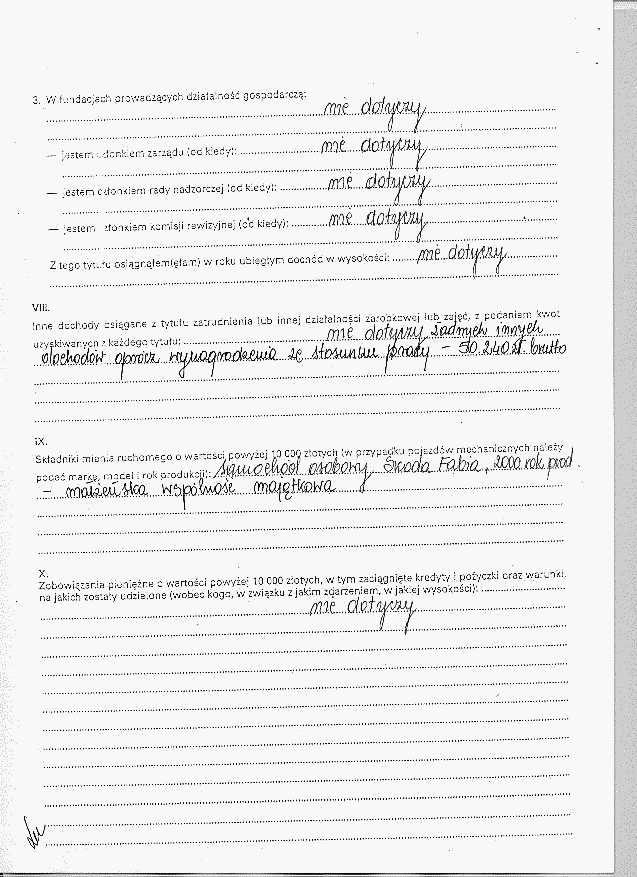 3. W fundacjach prowadzących działalność gospodarczą:
nie dotyczy
— jestem członkiem zarządu (od kiedy): nie dotyczy
— jestem członkiem rady nadzorczej (od kiedy): nie dotyczy
— jestem członkiem komisji rewizyjnej (od kiedy): nie dotyczy
Z tego tytułu osiągnąłem(ęłam) w roku ubiegłym dochód w wysokości: nie dotyczy
VIII.
Inne dochody osiągane z tytułu zatrudnienia lub innej działalności zarobkowej lub zajęć, z podaniem kwot
uzyskiwanych z każdego tytułu: nie dotyczy żadnych innych
dochodów oprócz wynagrodzenia ze stosunku pracy – 50.240 zł brutto
IX.
Składniki mienia ruchomego o wartości powyżej 10 000 złotych (w przypadku pojazdów mechanicznych należy
podać markę, model i rok produkcji): samochód osobowy Skoda Fabia, 2000 rok prod.
– małżeńska wspólność majątkowa
X.
Zobowiązania pieniężne o wartości powyżej 10 000 złotych, w tym zaciągnięte kredyty i pożyczki oraz warunki,
na jakich zostały udzielone (wobec kogo, w związku z jakim zdarzeniem, w jakiej wysokości):
nie dotyczy